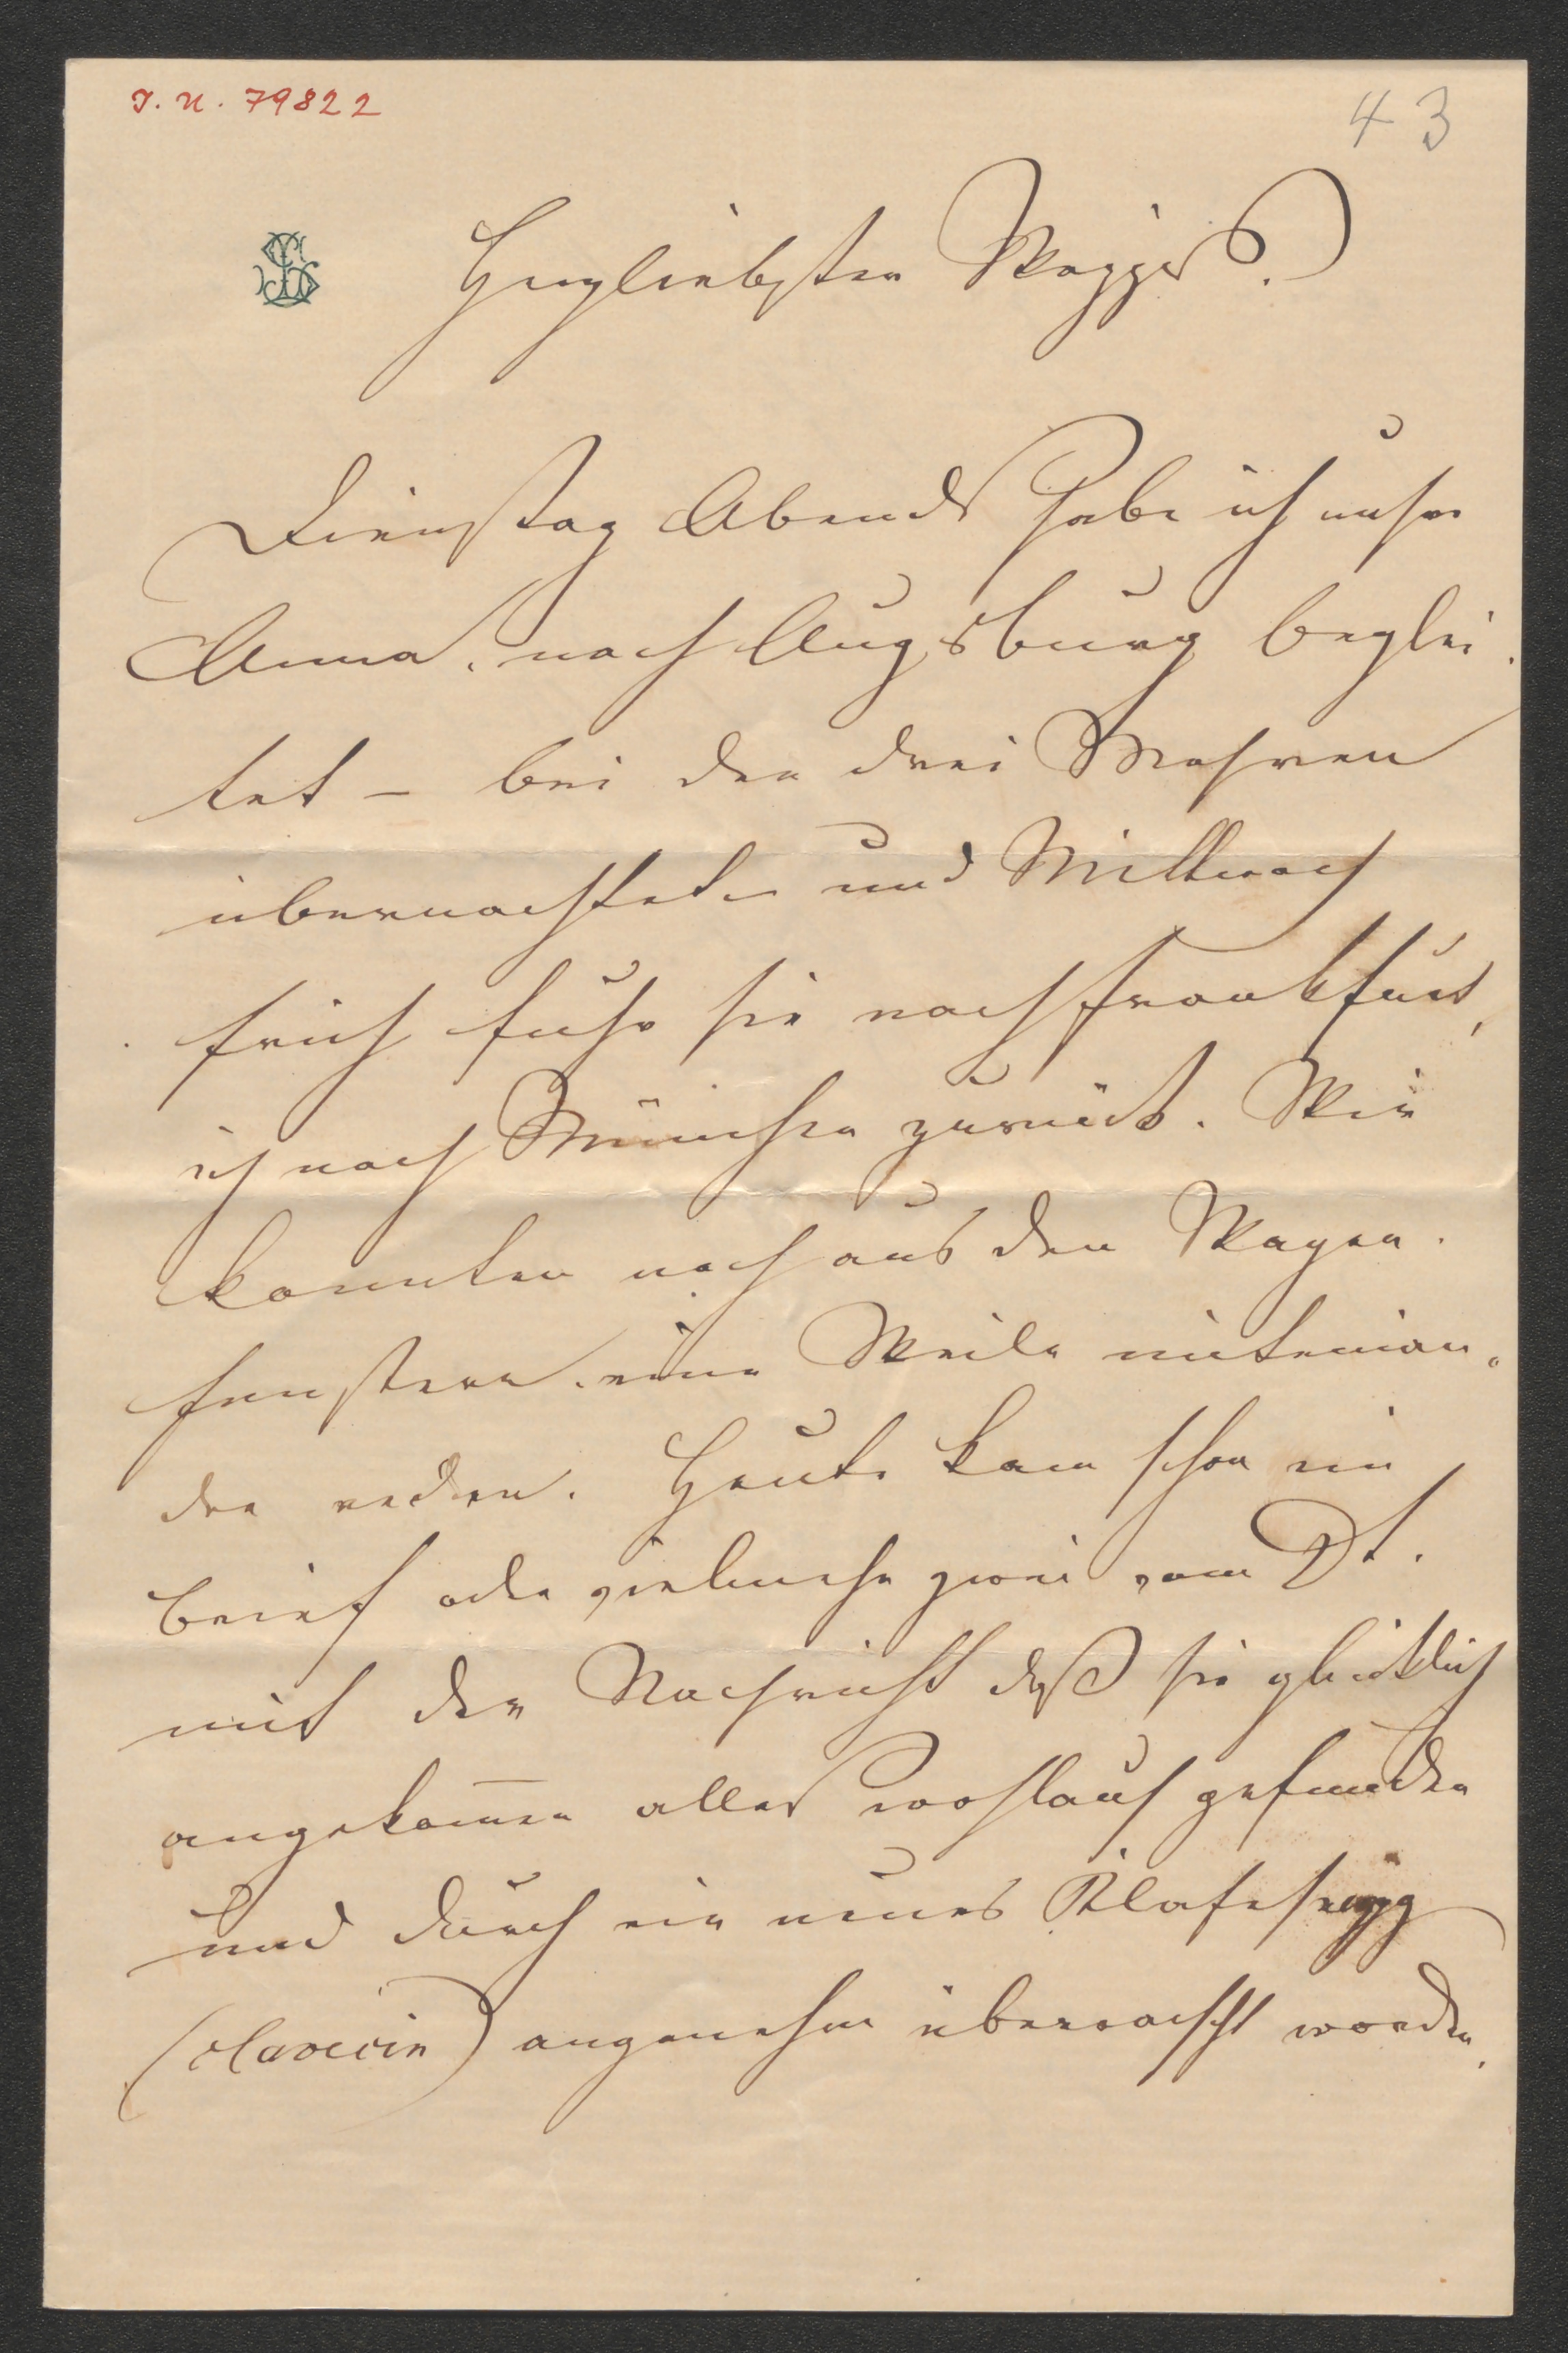 I. N. 79822
43
Herzliebster Wazzi.
Dienstag Abends habe ich unsre
Anna nach Augsburg beglei
tet – bei den drei Mohren
übernachtete und Mittwoch
früh fuhr sie nach Frankfurt,
ich nach München zurück. Wir
konnten noch aus den Wagen
fenstern eine Weile miteinan
der reden. Heute kam schon ein
Brief oder vielmehr zwei vom
mit der Nachricht daß sie glücklich
angekom̅en alles wohlauf gefunden
und durch ein neues
(Clavecin) angenehm überrascht worden.